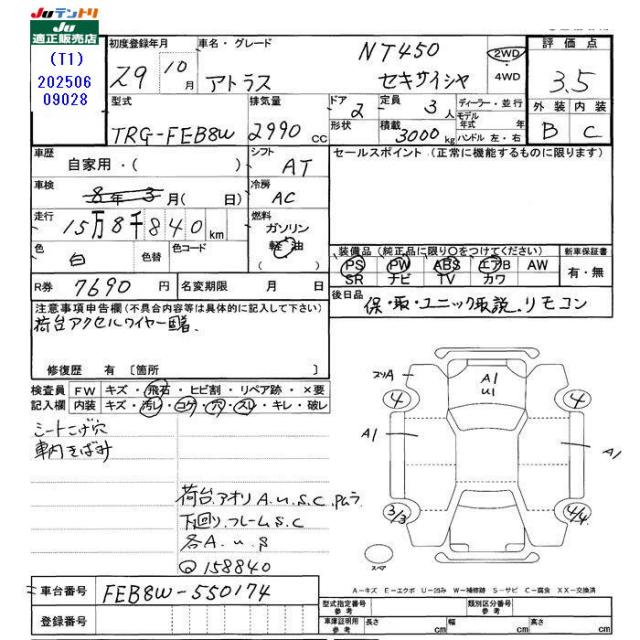 JUテントリ
JU
適正販売店
(T1)
202506
09028
初度登録年月
29 10月
車名・グレード
アトラス
NT450
セキサイシャ
2WD
4WD
評価点
3.5
外装 内装
B C
型式
TRG-FEB8W
排気量
2990 cc
ドア
2
形状
定員
3人
積載
3000kg
ディーラー・並行
モデル
年式 年
ハンドル 左・右
車歴
自家用・( )
シフト
AT
車検
8年3月( 日)
冷房
AC
走行
15万8千840km
燃料
ガソリン
軽油
色
白
色替
色コード
R券 7690円
名変期限 月 日
セールスポイント (正常に機能するものに限ります)
装備品(純正品に限り○をつけてください)
PS PW ABS エアB AW
SR ナビ TV カワ
新車保証書
有・無
後日品
保・取・ユニック取説.リモコン
注意事項申告欄(不具合内容等は具体的に記入して下さい)
荷台アクセルワイヤー固着.
修復歴 有 〔箇所 〕
検査員 FW キズ・飛石・ヒビ割・リペア跡・×要
記入欄 内装 キズ・汚レ・コゲ・穴・スレ・キレ・破レ
シートこげ穴
荷台アオリA.u.s.c.
下回り.フレームS.C
各A.u.s
158840
A1
u1
4
4
A1
A1
3/3
4/4
スペア
A-キズ E-エクボ U-凹み W-補修跡 S-サビ C-腐食 XX-交換済
車台番号 FEB8W-550174
登録番号
型式指定番号
参考
類別区分番号
参考
車庫証明用
参考
長さ cm
幅 cm
高さ cm